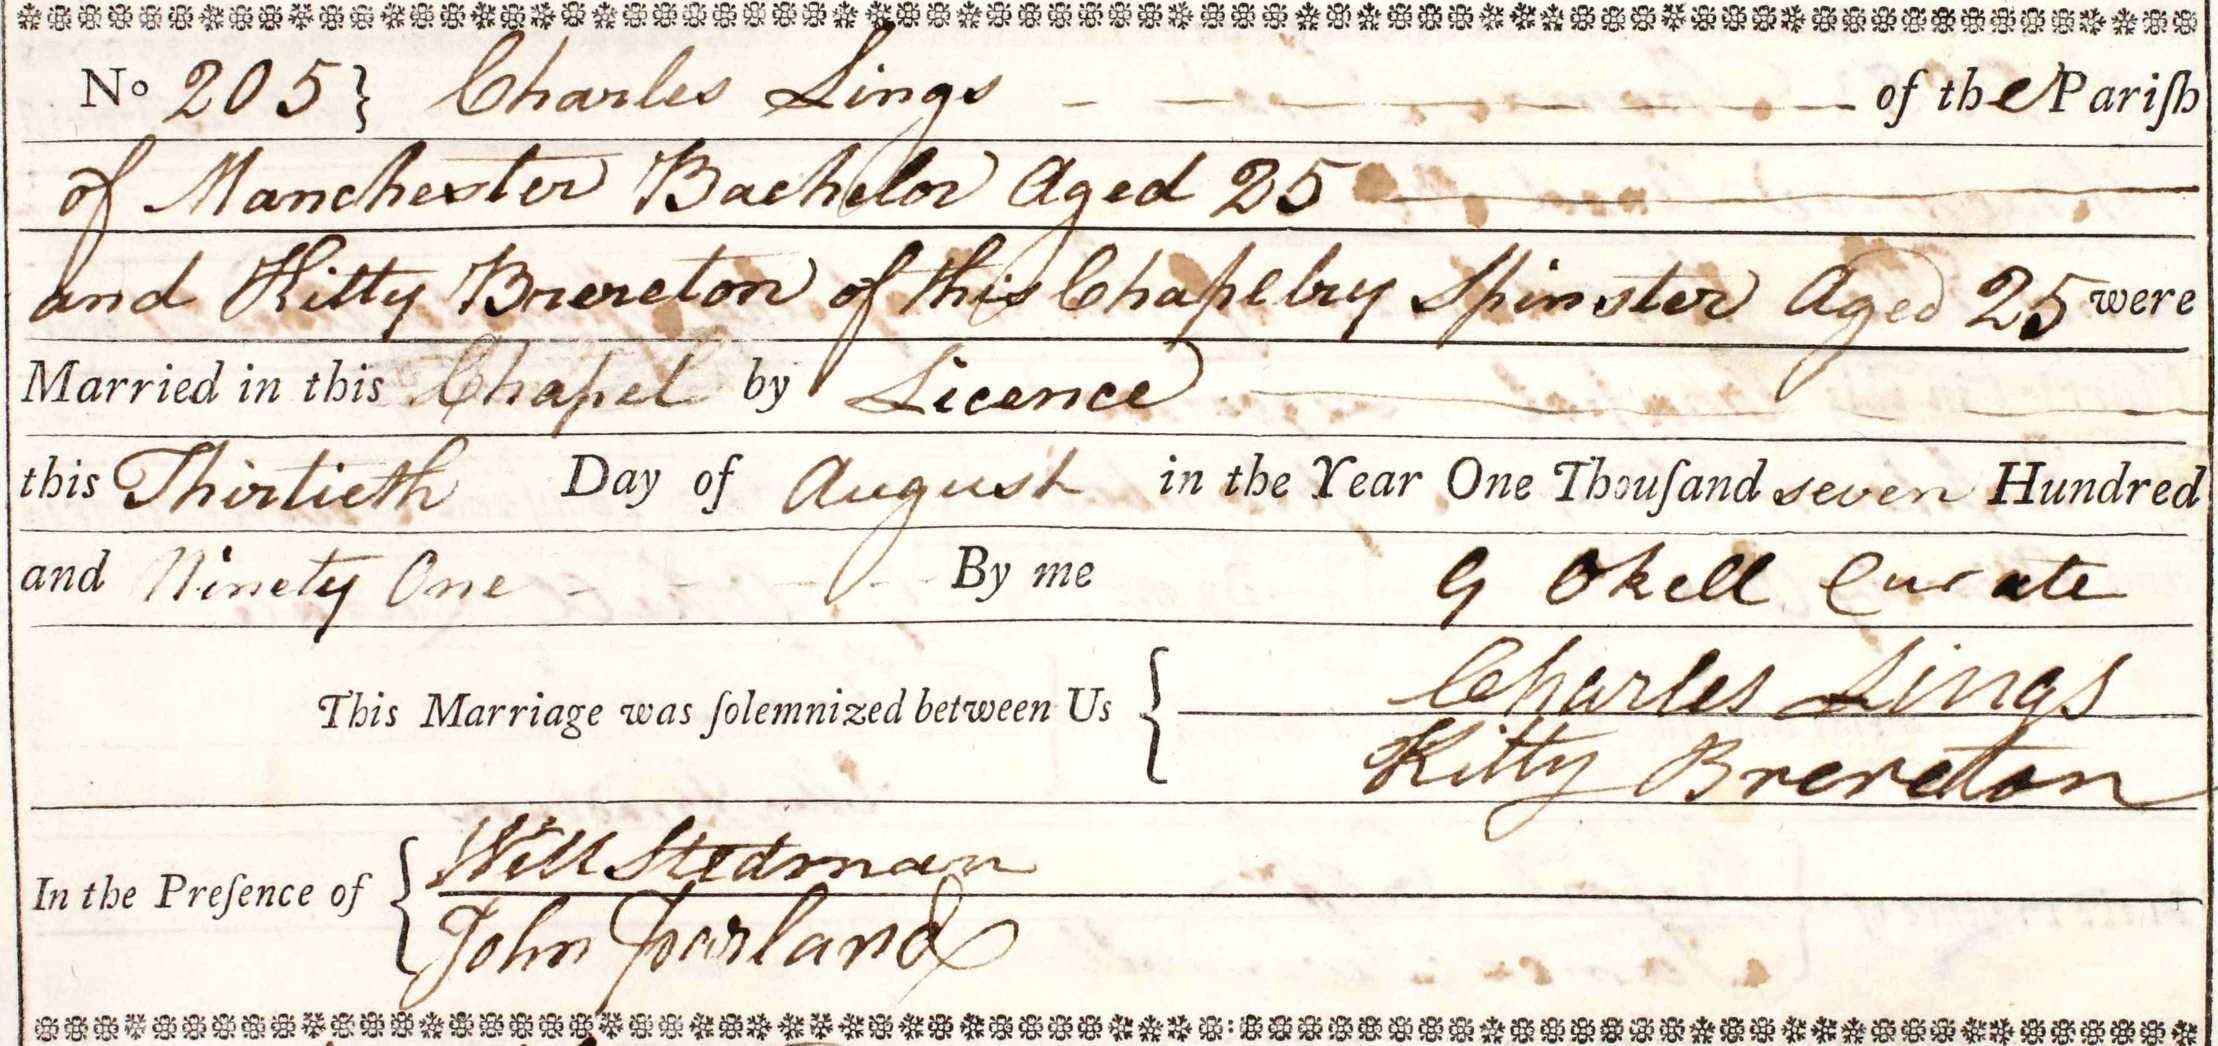 No 205} Charles Lings - - of the Pariſh
of Manchester Bachelor Aged 25
and Kitty Brereton of this Chapelbry Spinster Aged 25 were
Married in this Chapel by Licence
this Thirtieth Day of August in the Year One Thouſand seven Hundred
and Ninety One - - - - By me G Okell Curate
This Marriage was ſolemnized between Us { Charles Lings
Kitty Brereton
In the Preſence of { Will Stedman
John